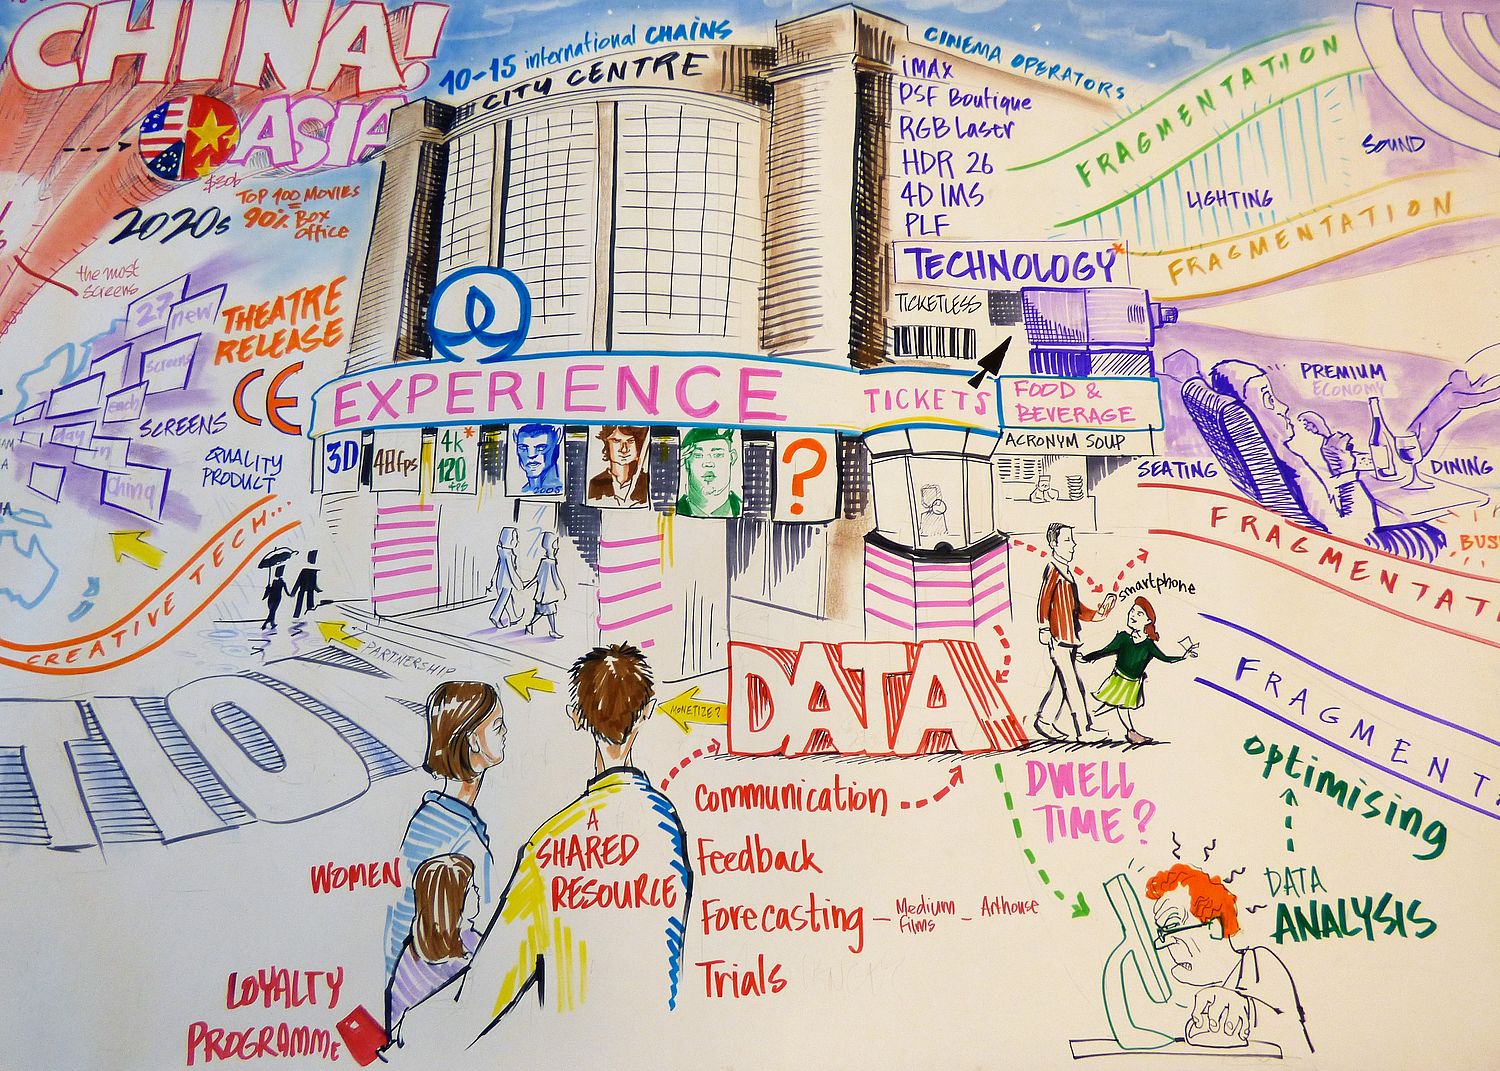 CHINA!
ASIA
10-15 international CHAINS
CITY CENTRE
CINEMA OPERATORS
iMAX
PSF Boutique
RGB Laser
HDR 26
4D IMS
PLF
TECHNOLOGY*
TICKETLESS
FRAGMENTATION
SOUND
LIGHTING
FRAGMENTATION
$30b
TOP 100 MOVIES
=
90% Box
office
2020s
the most
screens
27 new
screens
each
day
in
China
SCREENS
THEATRE
RELEASE
CE
QUALITY
PRODUCT
CREATIVE TECH...
EXPERIENCE
TICKETS
FOOD &
BEVERAGE
ACRONYM SOUP
3D
48fps
4k*
120
fps
2005
?
PREMIUM
ECONOMY
SEATING
DINING
FRAGMENTATI
BUS
smartphone
FRAGMENT
PARTNERSHIP
MONETIZE?
DATA
TION
Communication
Feedback
Forecasting – Medium Films – Arthouse
Trials
DWELL
TIME?
optimising
DATA
ANALYSIS
A
SHARED
RESOURCE
WOMEN
LOYALTY
PROGRAMME